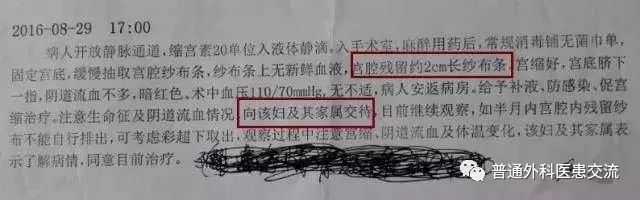 2016-08-29 17:00
病人开放静脉通道，缩宫素20单位入液体静滴，入手术室，麻醉用药后，常规消毒铺无菌巾单，
固定宫底，缓慢抽取宫腔纱布条，纱布条上无新鲜血液，宫腔残留约2cm长纱布条，宫缩好，宫底脐下
一指，阴道流血不多，暗红色。术中血压110/70mmHg，无不适，病人安返病房。给予补液、防感染、促宫
缩治疗。注意生命征及阴道流血情况，向该妇及其家属交待，目前继续观察，如半月内宫腔内残留纱
布不能自行排出，可考虑彩超下取出，观察过程中注意宫缩、阴道流血及体温变化，该妇及其家属表
示了解病情，同意目前治疗。
普通外科医患交流